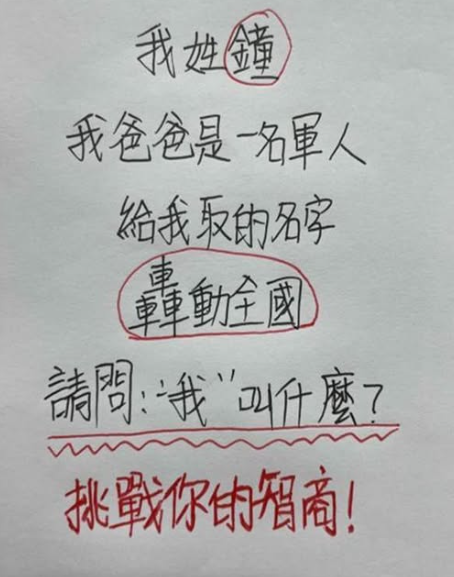 我姓鐘
我爸爸是一名軍人
給我取的名字
轟動全國
請問:“我”叫什麼?
挑戰你的智商!